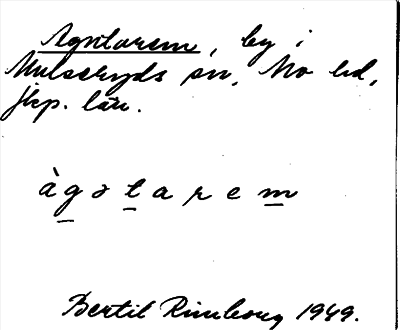 Agntarem, by i
Mulseryds sn, Mo hd,
Jkp. län.
àgətarem
Bertil Rimborg 1949.